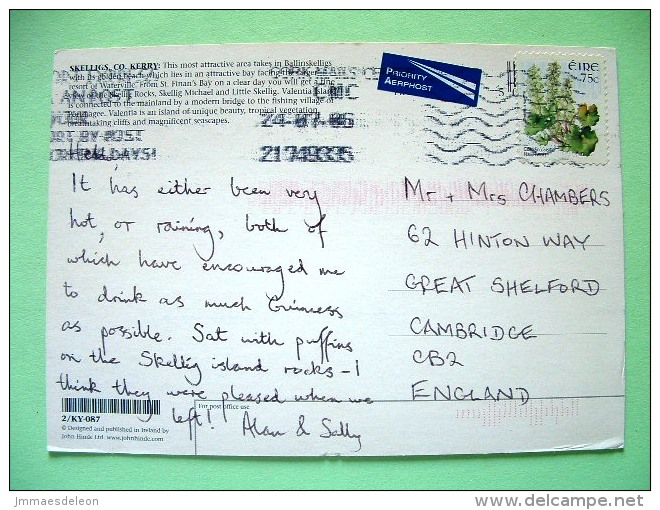 SKELLIGS, CO. KERRY: This most attractive area takes in Ballinskelligs
with its golden beach which lies in an attractive bay facing the larger
resort of Waterville. From St. Finan's Bay on a clear day you will get a fine
view of the Skellig Rocks, Skellig Michael and Little Skellig. Valentia
is connected to the mainland by a modern bridge to the fishing village of
Valentia is an island of unique beauty, tropical vegetation,
breathtaking cliffs and magnificent seascapes.
PRIORITY
AERPHOST
ÉIRE
75c
24-07-06
21749335
Hello,
It has either been very
hot, or raining, both of
which have encouraged me
to drink as much Guinness
as possible. Sat with puffins
on the Skellig island rocks - I
think they were pleased when we
left! Alan & Sally
Mr + Mrs CHAMBERS
62 HINTON WAY
GREAT SHELFORD
CAMBRIDGE
CB2
ENGLAND
2/KY-087
For post office use
© Designed and published in Ireland by
John Hinde Ltd. www.johnhinde.com
jmmaesdeleon
delcampe.net